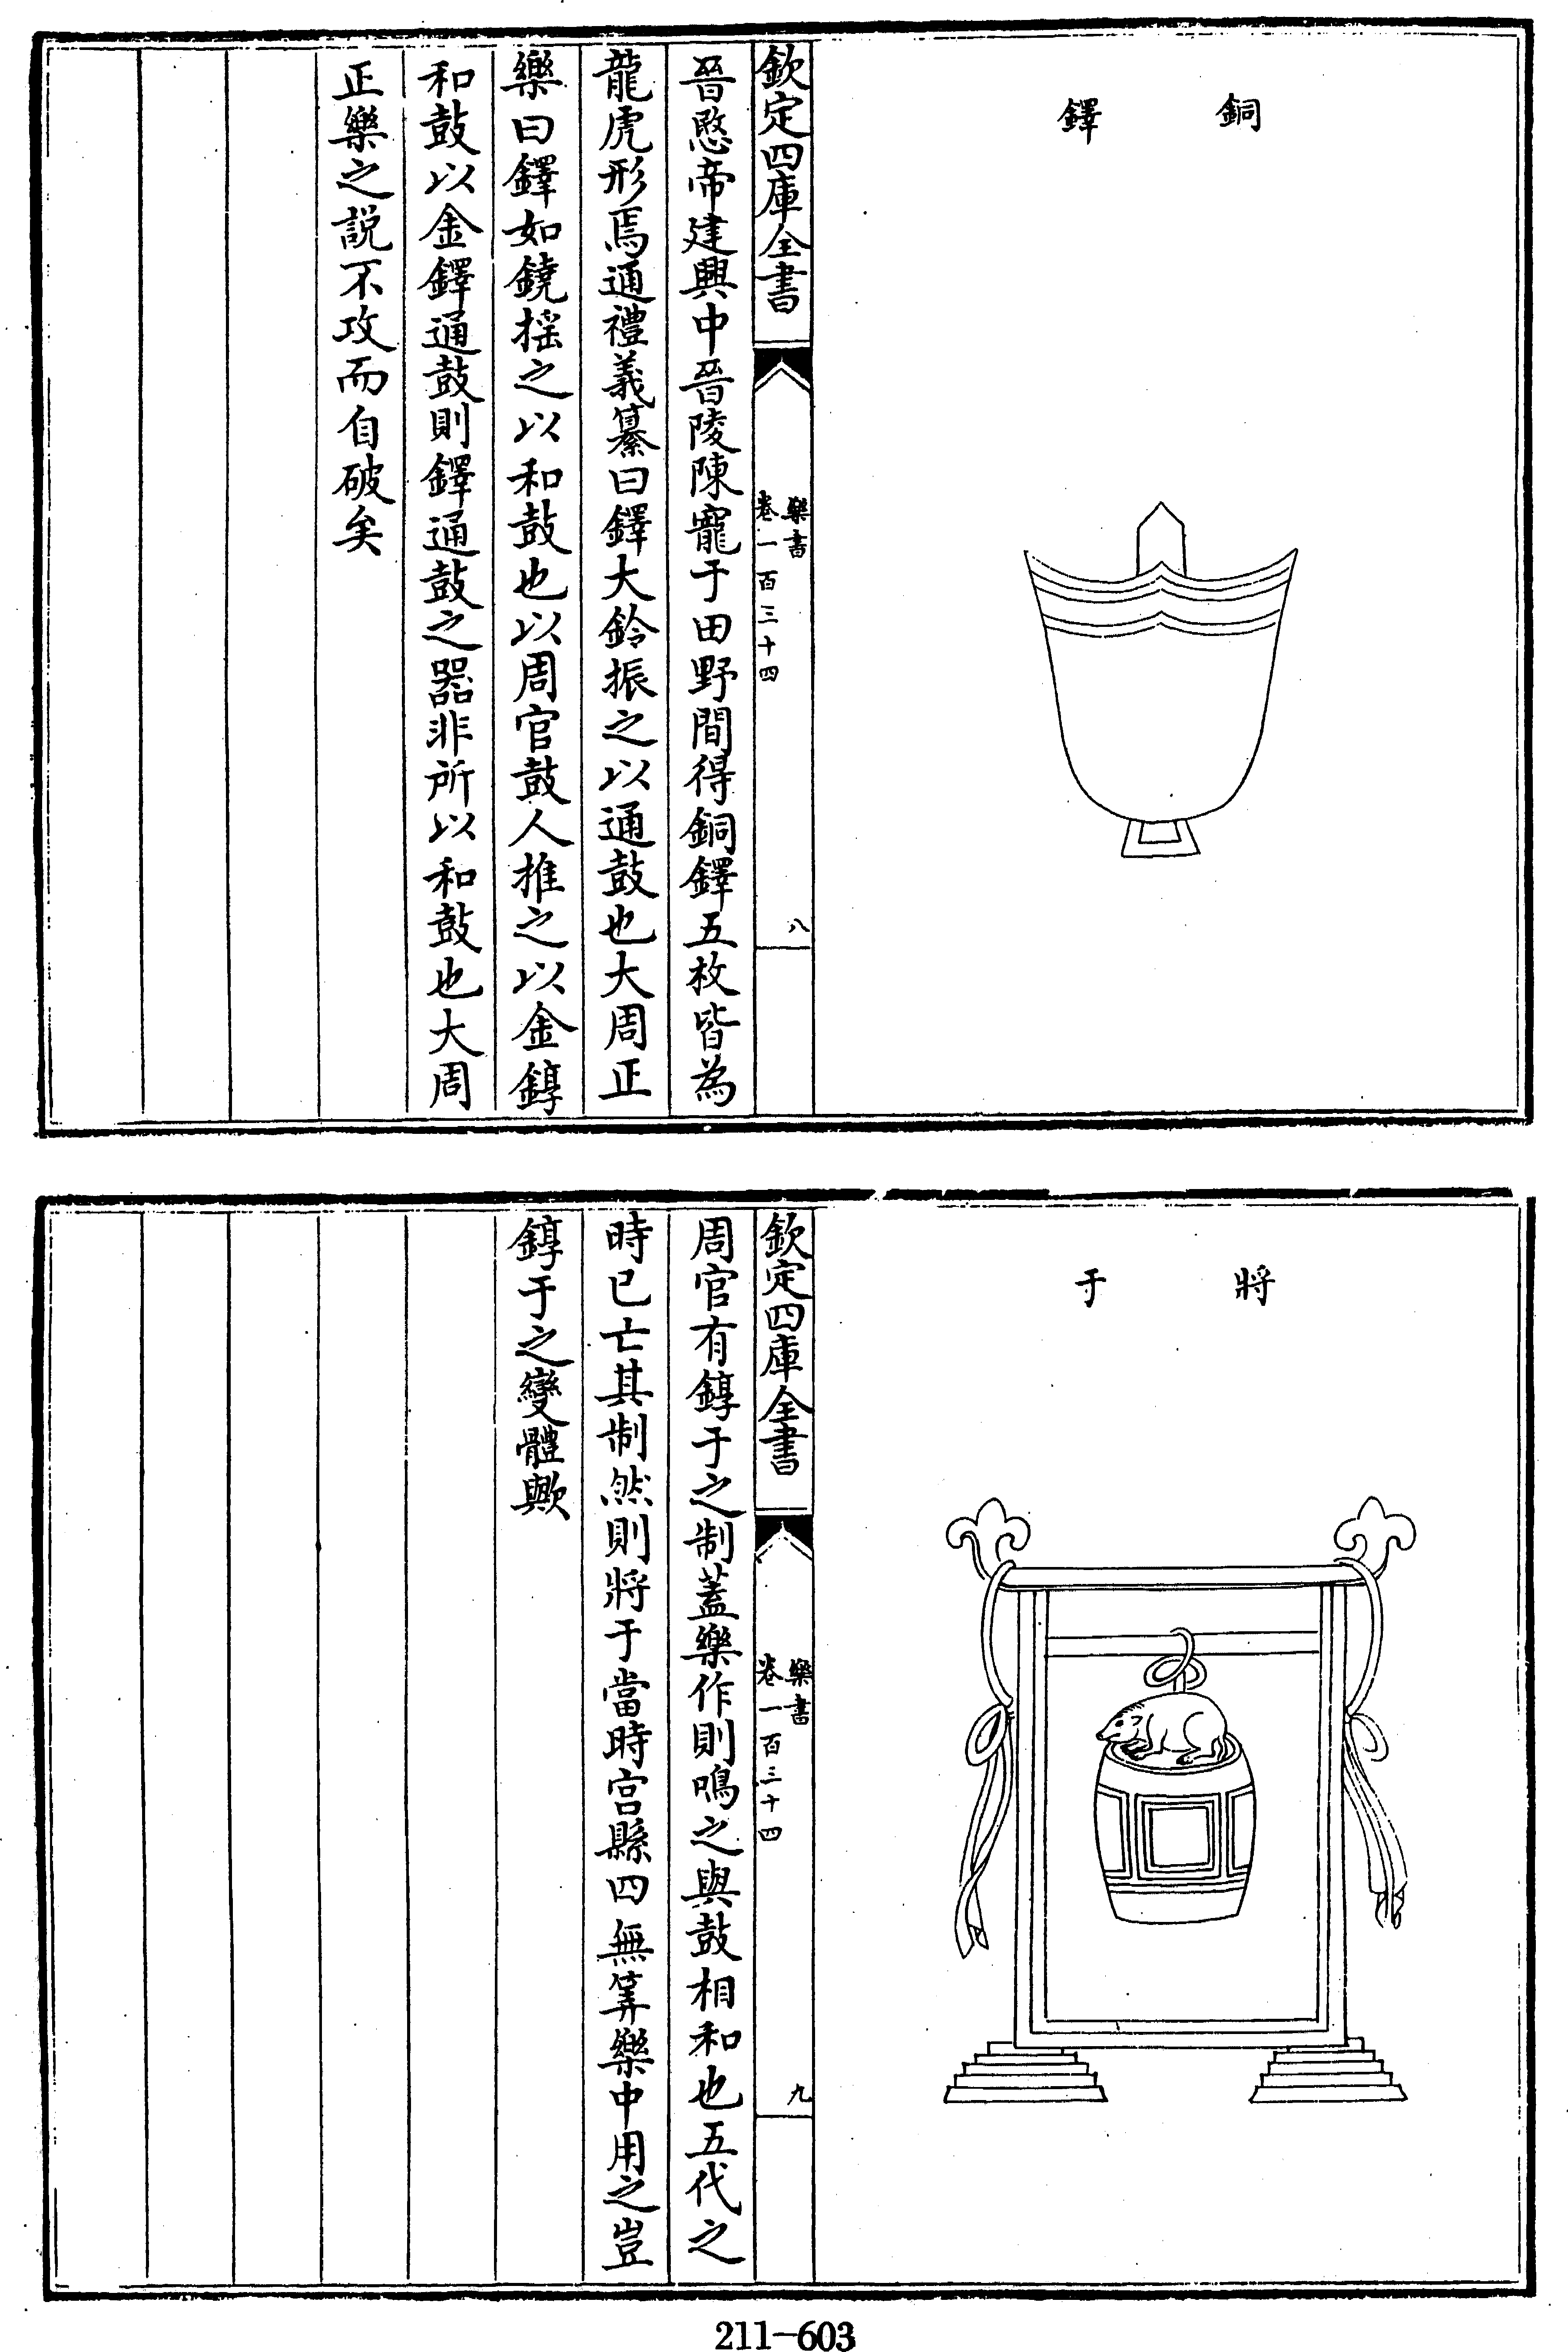 銅鐸
欽定四庫全書
樂書
卷一百三十四
八
晉愍帝建興中晉陵陳寵于田野間得銅鐸五枚皆為
龍虎形焉通禮義纂曰鐸大鈴振之以通鼓也大周正
樂曰鐸如鐃揺之以和鼓也以周官鼓人推之以金錞
和鼓以金鐸通鼓則鐸通鼓之器非所以和鼓也大周
正樂之説不攻而自破矣
將于
欽定四庫全書
樂書
卷一百三十四
九
周官有錞于之制蓋樂作則鳴之與鼓相和也五代之
時已亡其制然則將于當時宫縣四無筭樂中用之豈
錞于之變體歟
211-603